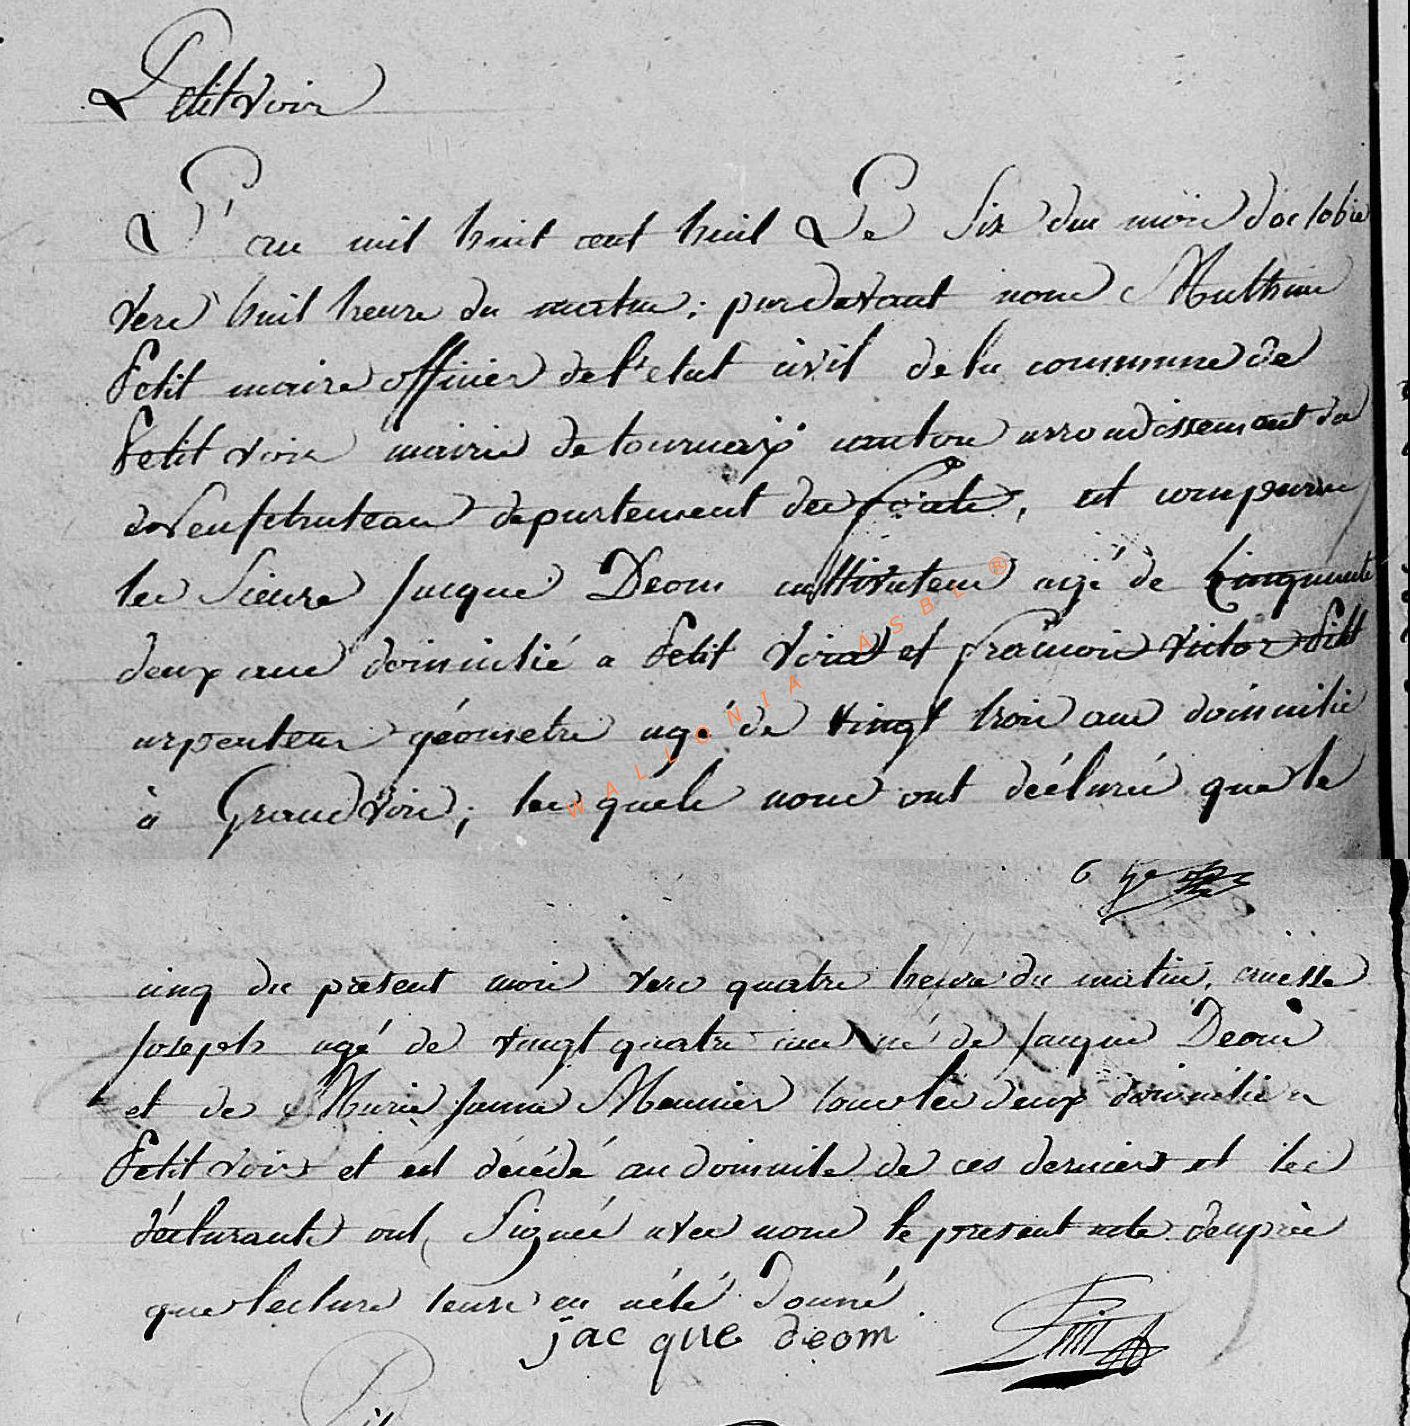 Petitvoir
L'an mil huit cent huit Le Six du mois doctobre
vers huit heure du matin; pardevant nous Mathieu
Petit maire officier de l'etat civil de la commune de
Petit voir mairie de tournay canton arrondissement de
de Neufchateau departement des forêts, est comparu
les Sieurs Jacque Deom cultivateur agé de Cinquante
deux ans domicilié a Petit Voir et francois victor Petit
arpenteur géometre agé de vingt trois ans domicilié
à Grandvoir, les quels nous ont déclaré que le
WALLONIA ASBL ®
6
cinq du présent mois vers quatre heure du matin,
Joseph agé de vingt quatre ans né de Jacque Deom
et de Marie Jeanne Meunier tous les deux domicilié a
Petit voir et est décédé au domicile de ces derniers et les
déclarants ont Signés avec nous le present acte d'après
que lecture leurs en a été donné.
jacque deom Petit